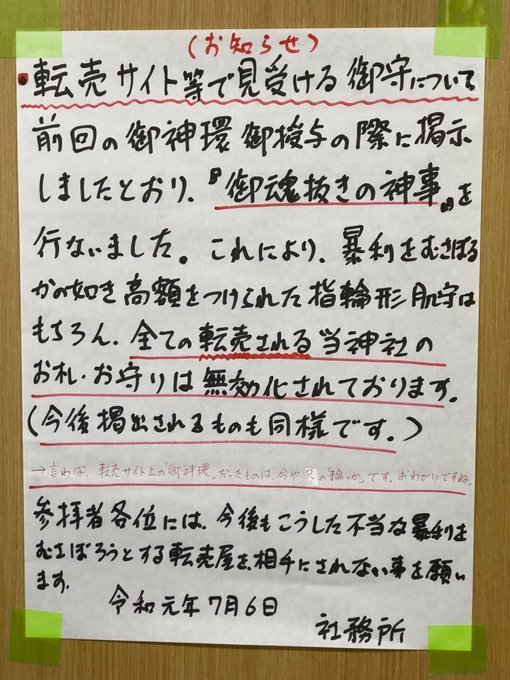 (お知らせ)
・転売サイト等で見受ける御守について
前回の御神環御授与の際に掲示
しましたとおり、『御魂抜きの神事』を
行ないました。これにより、暴利をむさぼる
かの如き高額をつけられた指輪形肌守は
もちろん、全ての転売される当神社の
お札・お守りは無効化されております。
(今後掲出されるものも同様です。)
→言わば、転売サイト上の「御神環」だったものは、今や只の「輪っか」です。おわかりですね。
参拝者各位には、今後もこうした不当な暴利を
むさぼろうとする転売屋を相手にされない事を願い
ます。
令和元年7月6日
社務所